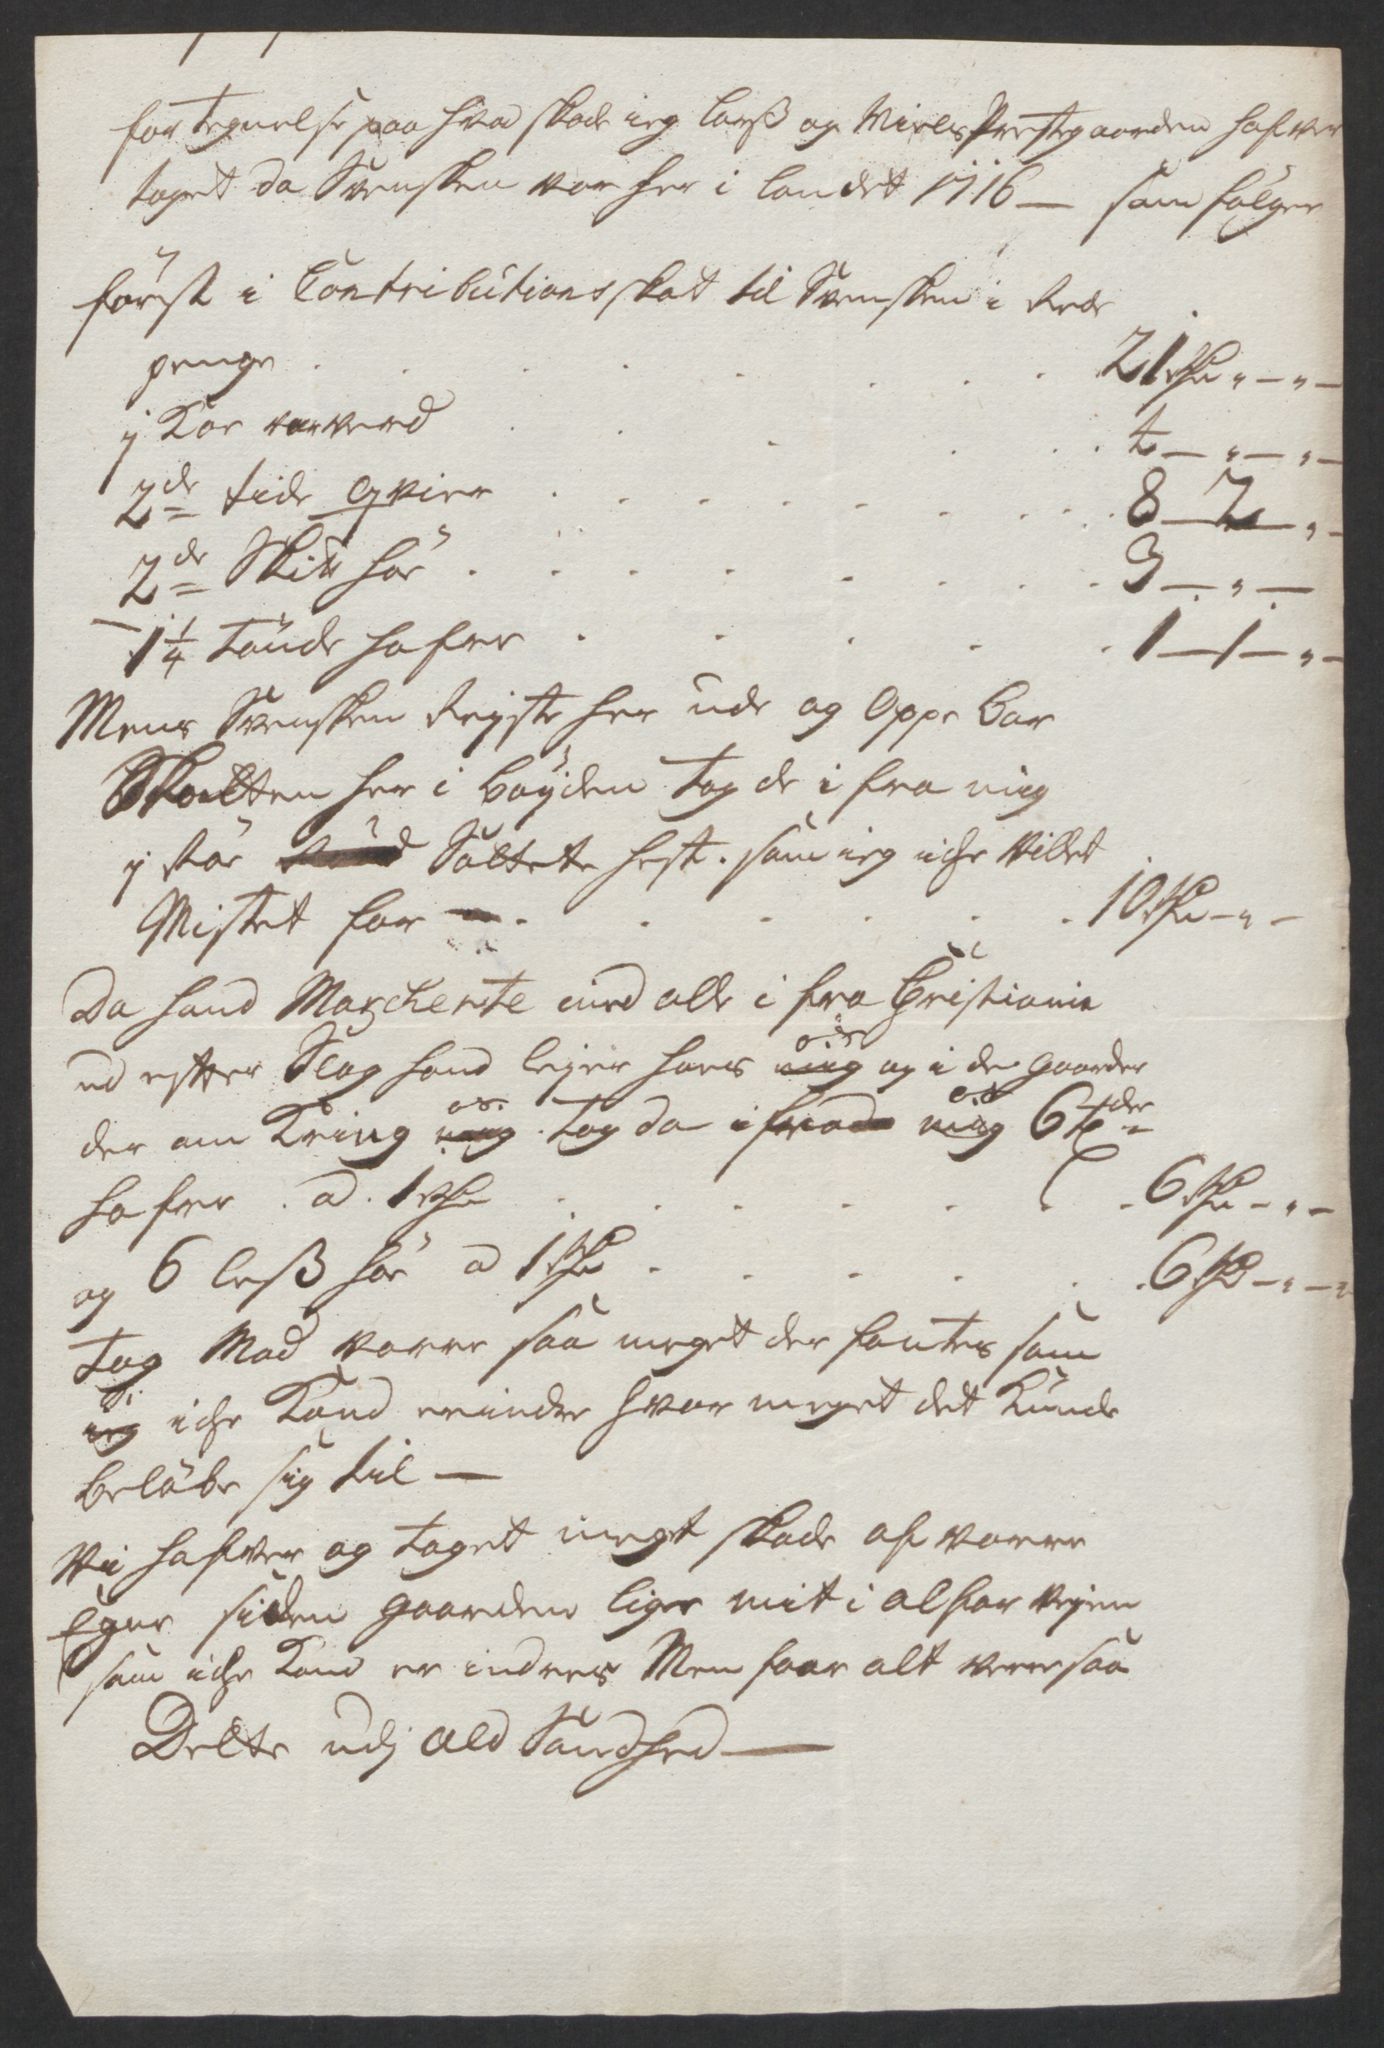 for tegnelse paa hvad skade ieg Larß og Niels Prestegaarden hafver
taget da Svensken var her i Landet 1716 — som følger
først i Contributions skat til Svensken i Rede
penge . . . . . . . . 21 Rdr " — " —
j Koe var verd . . . . . 4 — " — " —
2de tide qvier . . . . . . . . 8 — 2 — " —
2de Skitt høe . . . . . . . . 3 — " —
1 1/4 Tønde hafre . . . . . 1 — 1 — " —
Mens Svensken Reyste her ude og Oppe bar
Skatten her i bøyden tog de i fra mig
j stor Soltete hest . som ieg iche villet
Mistet for . . . . . . 10 Rdr — " —
Da hand Marcherte med alle i fra Christiania
ud efter Slag hand leyer hoes mig os og i de gaarder
der om Kring mig os . tog da i frade mig os 6 Tder
hafre . a . 1 Rdr . . . . . . . 6 Rdr — " —
og 6 leß høe a 1 Rdr . . . . . 6 Rd — " — "
tog Mad varre saa meget der fantes som
ieg vi iche Kand erindre hvor meget det Kunde
beløbe sig til —
Vii hafver og taget meget skade af vorre
Egne siden gaarden liger mit i alfar veyen
som iche Kand er indres Men faar alt verre saa
Dette udj Ald Sandhed —